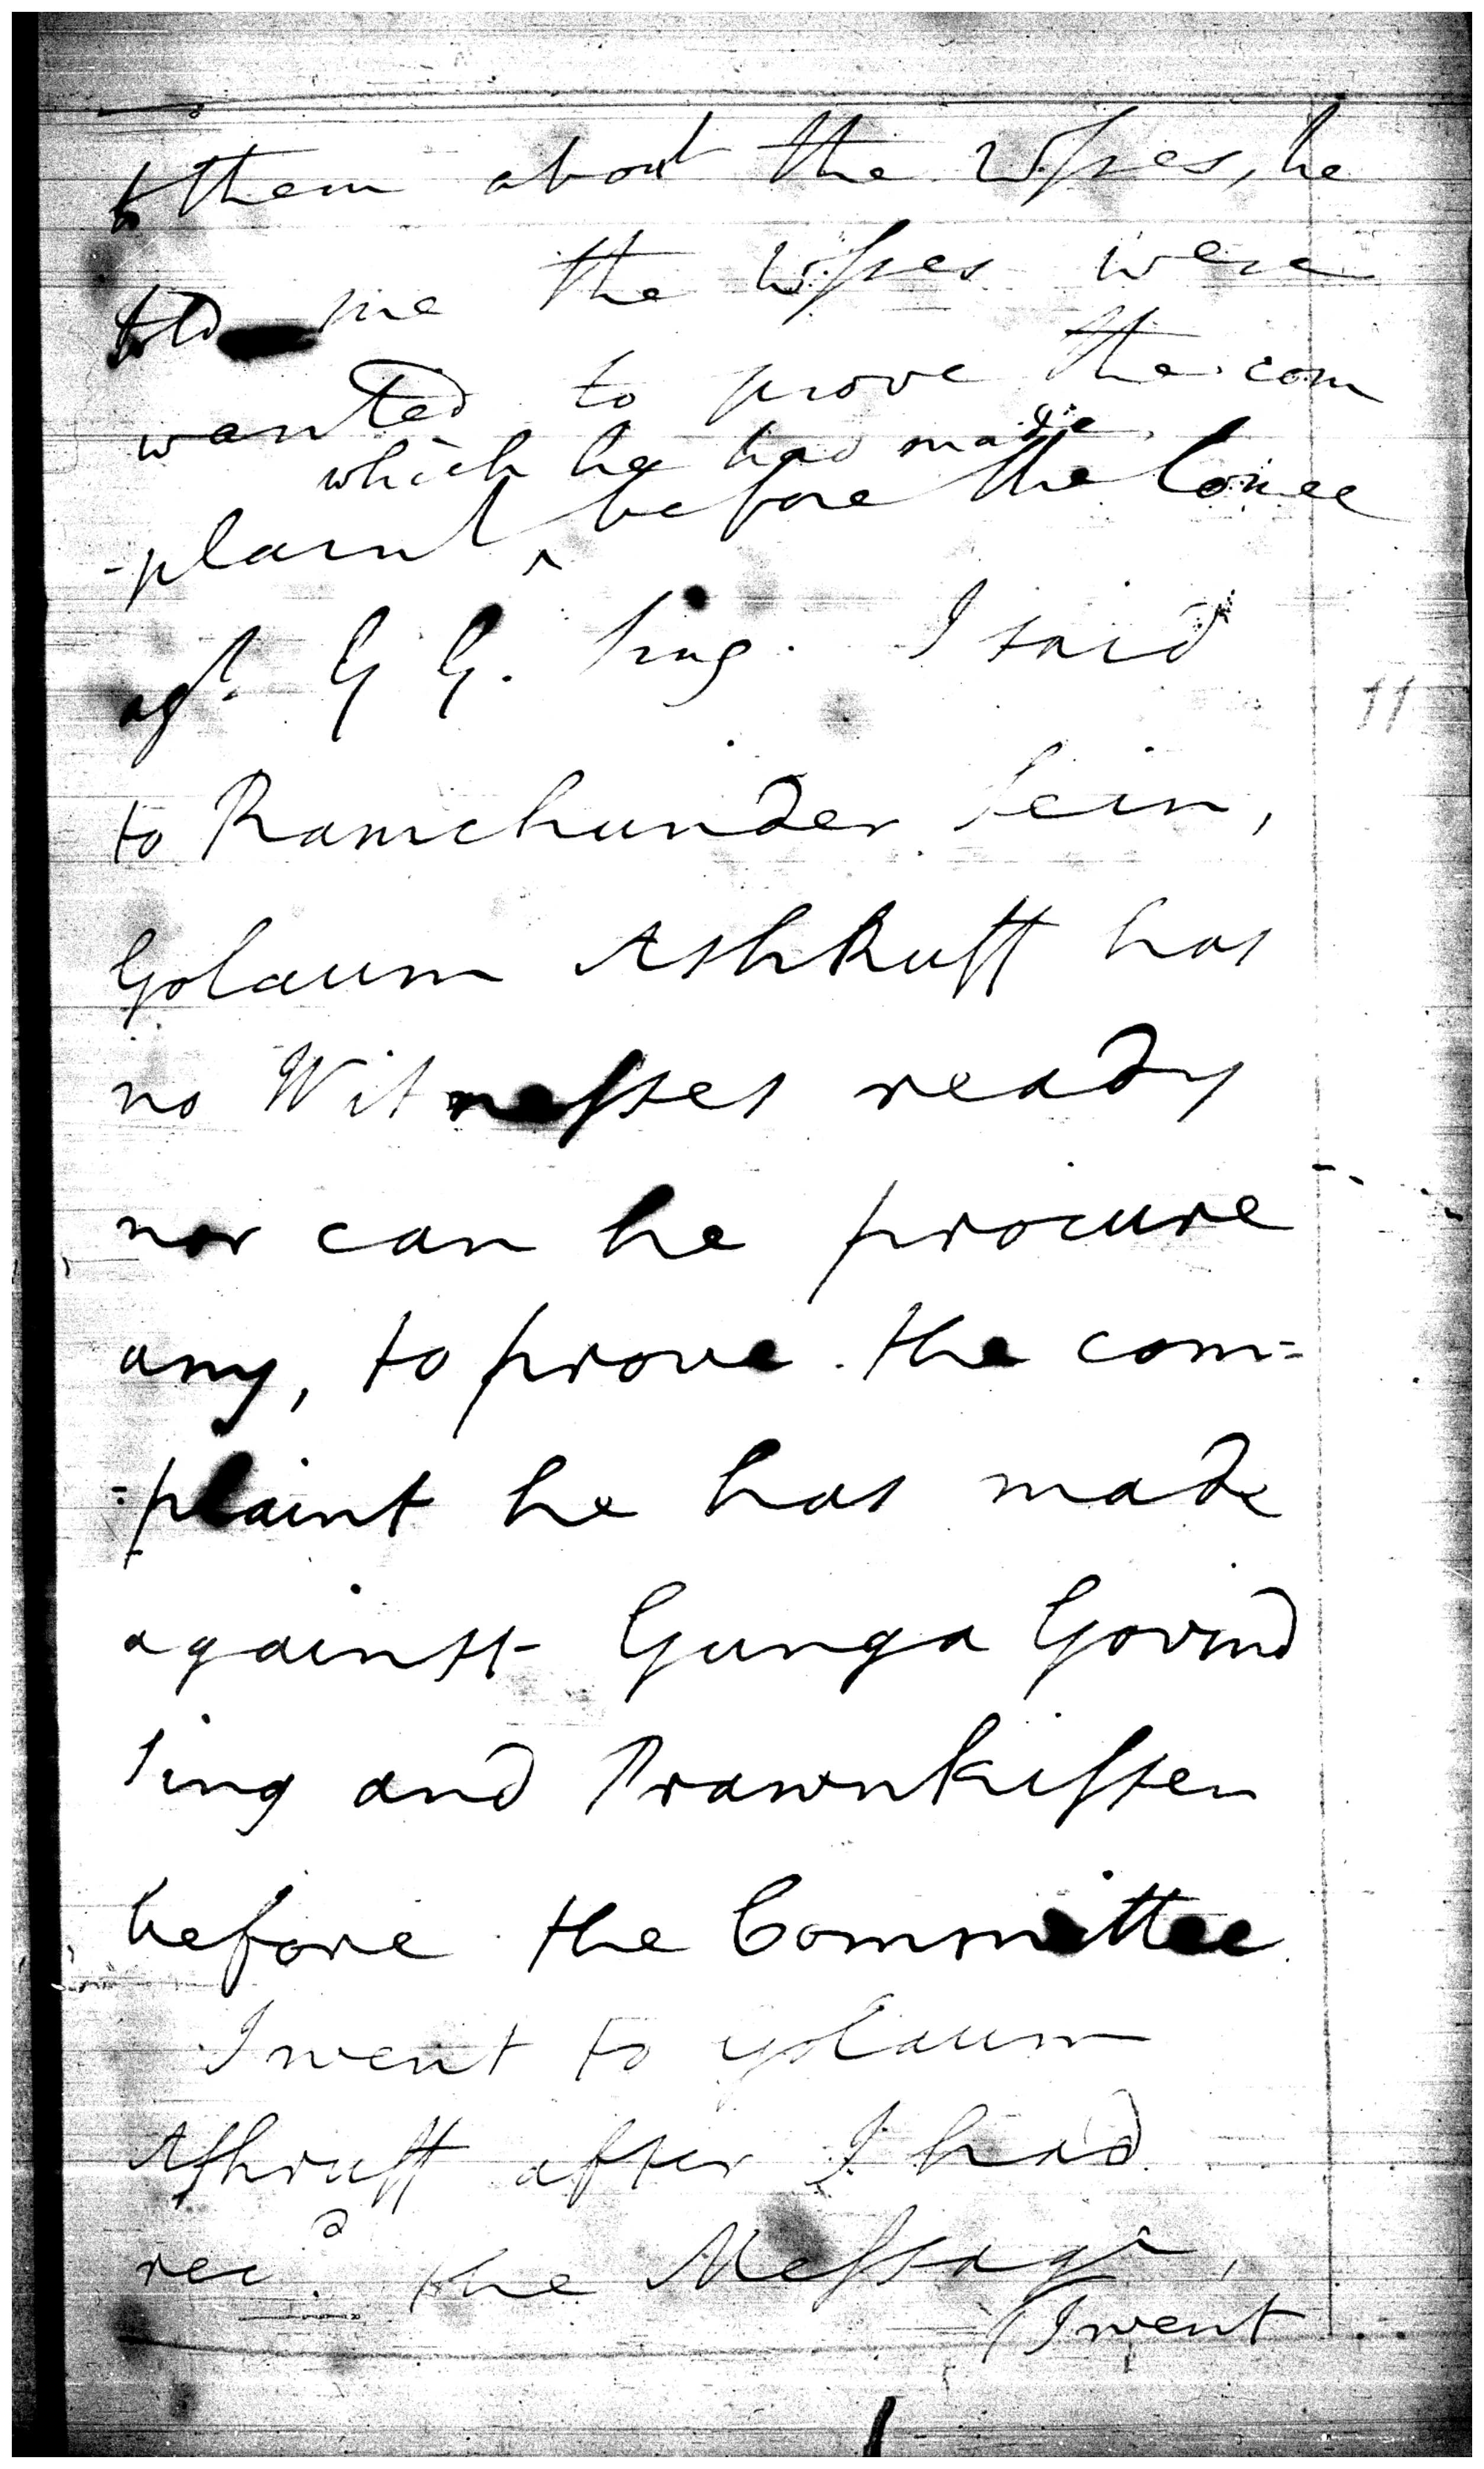 to them about the Wſses, he
told me the Wſses were
wanted to prove the com
which he had made
-plaint ^ before the Comee
agt. G G. Sing. I said
11
to Ramchunder Sein,
Golaum AshRuff has
no Witneſses ready
nor can he procure
any, to prove the com=
=plaint he has made
against Gunga Govind
Sing and Prawnkiſsen
before the Committee.
I went to Golaum
Aſhruff after I had
recd. the Meſsage,
I went